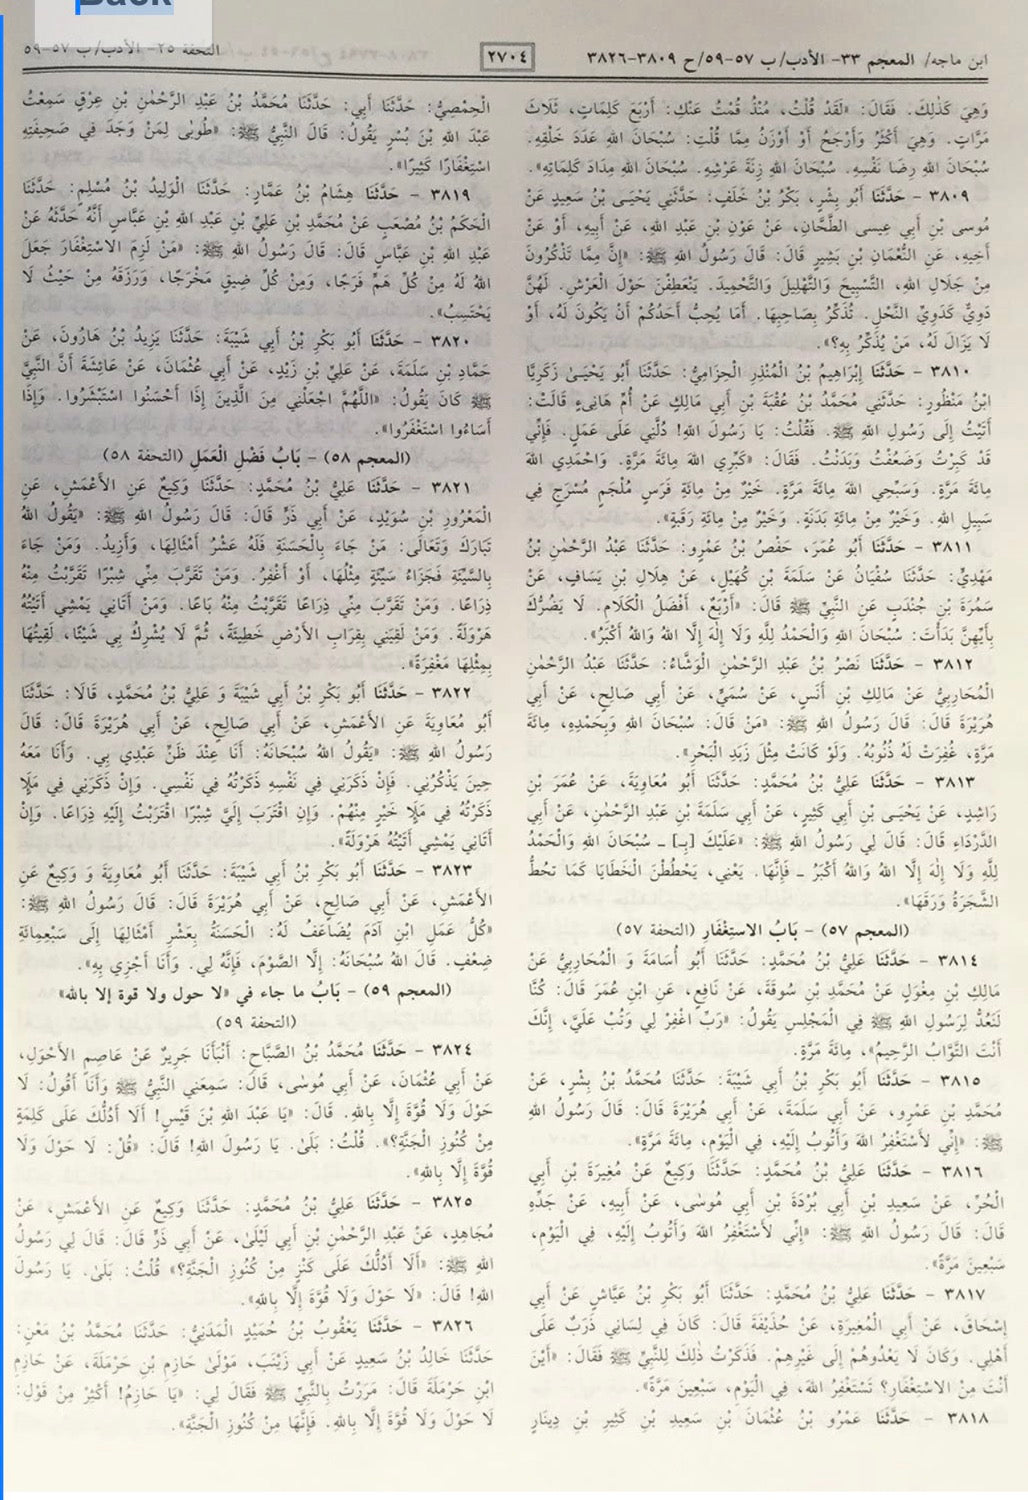 Back
ابن ماجه/ المعجم ٣٣- الأدب/ ب ٥٧-٥٩/ح ٣٨٠٩-٣٨٢٦
٢٧٠٤
التحفة ٢٥- الأدب/ ب ٥٧-٥٩
وَهِيَ كَذٰلِكَ. فَقَالَ: «لَقَدْ قُلْتُ، مُنْذُ قُمْتُ عَنْكِ: أَرْبَعَ كَلِمَاتٍ، ثَلَاثَ
مَرَّاتٍ. وَهِيَ أَكْثَرُ وَأَرْجَحُ أَوْ أَوْزَنُ مِمَّا قُلْتِ: سُبْحَانَ اللهِ عَدَدَ خَلْقِهِ.
سُبْحَانَ اللهِ رِضَا نَفْسِهِ. سُبْحَانَ اللهِ زِنَةَ عَرْشِهِ. سُبْحَانَ اللهِ مِدَادَ كَلِمَاتِهِ».
٣٨٠٩ - حَدَّثَنَا أَبُو بِشْرٍ، بَكْرُ بْنُ خَلَفٍ: حَدَّثَنِي يَحْيَى بْنُ سَعِيدٍ عَنْ
مُوسى بْنِ أَبِي عِيسى الطَّحَّانِ، عَنْ عَوْنِ بْنِ عَبْدِ اللهِ، عَنْ أَبِيهِ، أَوْ عَنْ
أَخِيهِ، عَنِ النُّعْمَانِ بْنِ بَشِيرٍ قَالَ: قَالَ رَسُولُ اللهِ ﷺ: «إِنَّ مِمَّا تَذْكُرُونَ
مِنْ جَلَالِ اللهِ، التَّسْبِيحَ وَالتَّهْلِيلَ وَالتَّحْمِيدَ. يَنْعَطِفْنَ حَوْلَ الْعَرْشِ. لَهُنَّ
دَوِيٌّ كَدَوِيِّ النَّحْلِ. تُذَكِّرُ بِصَاحِبِهَا. أَمَا يُحِبُّ أَحَدُكُمْ أَنْ يَكُونَ لَهُ، أَوْ
لَا يَزَالَ لَهُ، مَنْ يُذَكِّرُ بِهِ؟».
٣٨١٠ - حَدَّثَنَا إِبْرَاهِيمُ بْنُ الْمُنْذِرِ الْحِزَامِيُّ: حَدَّثَنَا أَبُو يَحْيَىٰ زَكَرِيَّا
ابْنُ مَنْظُورٍ: حَدَّثَنِي مُحَمَّدُ بْنُ عُقْبَةَ بْنِ أَبِي مَالِكٍ عَنْ أُمِّ هَانِىءٍ قَالَتْ:
أَتَيْتُ إِلَى رَسُولِ اللهِ ﷺ. فَقُلْتُ: يَا رَسُولَ اللهِ! دُلَّنِي عَلَى عَمَلٍ. فَإِنِّي
قَدْ كَبِرْتُ وَضَعُفْتُ وَبَدَنْتُ. فَقَالَ: «كَبِّرِي اللهَ مِائَةَ مَرَّةٍ. وَاحْمَدِي اللهَ
مِائَةَ مَرَّةٍ. وَسَبِّحِي اللهَ مِائَةَ مَرَّةٍ. خَيْرٌ مِنْ مِائَةِ فَرَسٍ مُلْجَمٍ مُسْرَجٍ فِي
سَبِيلِ اللهِ. وَخَيْرٌ مِنْ مِائَةِ بَدَنَةٍ. وَخَيْرٌ مِنْ مِائَةِ رَقَبَةٍ».
٣٨١١ - حَدَّثَنَا أَبُو عُمَرَ، حَفْصُ بْنُ عَمْرٍو: حَدَّثَنَا عَبْدُ الرَّحْمٰنِ بْنُ
مَهْدِيٍّ: حَدَّثَنَا سُفْيَانُ عَنْ سَلَمَةَ بْنِ كُهَيْلٍ، عَنْ هِلَالِ بْنِ يَسَافٍ، عَنْ
سَمُرَةَ بْنِ جُنْدَبٍ عَنِ النَّبِيِّ ﷺ قَالَ: «أَرْبَعٌ، أَفْضَلُ الْكَلَامِ. لَا يَضُرُّكَ
بِأَيِّهِنَّ بَدَأْتَ: سُبْحَانَ اللهِ وَالْحَمْدُ لِلَّهِ وَلَا إِلٰهَ إِلَّا اللهُ وَاللهُ أَكْبَرُ».
٣٨١٢ - حَدَّثَنَا نَصْرُ بْنُ عَبْدِ الرَّحْمٰنِ الْوَشَّاءُ: حَدَّثَنَا عَبْدُ الرَّحْمٰنِ
الْمُحَارِبِيُّ عَنْ مَالِكِ بْنِ أَنَسٍ، عَنْ سُمَيٍّ، عَنْ أَبِي صَالِحٍ، عَنْ أَبِي
هُرَيْرَةَ قَالَ: قَالَ رَسُولُ اللهِ ﷺ: «مَنْ قَالَ: سُبْحَانَ اللهِ وَبِحَمْدِهِ، مِائَةَ
مَرَّةٍ، غُفِرَتْ لَهُ ذُنُوبُهُ. وَلَوْ كَانَتْ مِثْلَ زَبَدِ الْبَحْرِ».
٣٨١٣ - حَدَّثَنَا عَلِيُّ بْنُ مُحَمَّدٍ: حَدَّثَنَا أَبُو مُعَاوِيَةَ، عَنْ عُمَرَ بْنِ
رَاشِدٍ، عَنْ يَحْيَى بْنِ أَبِي كَثِيرٍ، عَنْ أَبِي سَلَمَةَ بْنِ عَبْدِ الرَّحْمٰنِ، عَنْ أَبِي
الدَّرْدَاءِ قَالَ: قَالَ لِي رَسُولُ اللهِ ﷺ: «عَلَيْكَ [بِـ] ـ سُبْحَانَ اللهِ وَالْحَمْدُ
لِلَّهِ وَلَا إِلٰهَ إِلَّا اللهُ وَاللهُ أَكْبَرُ ـ فَإِنَّهَا. يَعْنِي، يَحْطُطْنَ الْخَطَايَا كَمَا تَحُطُّ
الشَّجَرَةُ وَرَقَهَا».
(المعجم ٥٧) - بَابُ الاسْتِغْفَارِ (التحفة ٥٧)
٣٨١٤ - حَدَّثَنَا عَلِيُّ بْنُ مُحَمَّدٍ: حَدَّثَنَا أَبُو أُسَامَةَ وَ الْمُحَارِبِيُّ عَنْ
مَالِكِ بْنِ مِغْوَلٍ عَنْ مُحَمَّدِ بْنِ سُوقَةَ، عَنْ نَافِعٍ، عَنِ ابْنِ عُمَرَ قَالَ: كُنَّا
لَنَعُدُّ لِرَسُولِ اللهِ ﷺ فِي الْمَجْلِسِ يَقُولُ: «رَبِّ اغْفِرْ لِي وَتُبْ عَلَيَّ، إِنَّكَ
أَنْتَ التَّوَّابُ الرَّحِيمُ»، مِائَةَ مَرَّةٍ.
٣٨١٥ - حَدَّثَنَا أَبُو بَكْرِ بْنُ أَبِي شَيْبَةَ: حَدَّثَنَا مُحَمَّدُ بْنُ بِشْرٍ، عَنْ
مُحَمَّدِ بْنِ عَمْرٍو، عَنْ أَبِي سَلَمَةَ، عَنْ أَبِي هُرَيْرَةَ قَالَ: قَالَ رَسُولُ اللهِ
ﷺ: «إِنِّي لأَسْتَغْفِرُ اللهَ وَأَتُوبُ إِلَيْهِ، فِي الْيَوْمِ، مِائَةَ مَرَّةٍ».
٣٨١٦ - حَدَّثَنَا عَلِيُّ بْنُ مُحَمَّدٍ: حَدَّثَنَا وَكِيعٌ عَنْ مُغِيرَةَ بْنِ أَبِي
الْحُرِّ، عَنْ سَعِيدِ بْنِ أَبِي بُرْدَةَ بْنِ أَبِي مُوسَى، عَنْ أَبِيهِ، عَنْ جَدِّهِ
قَالَ: قَالَ رَسُولُ اللهِ ﷺ: «إِنِّي لأَسْتَغْفِرُ اللهَ وَأَتُوبُ إِلَيْهِ، فِي الْيَوْمِ،
سَبْعِينَ مَرَّةً».
٣٨١٧ - حَدَّثَنَا عَلِيُّ بْنُ مُحَمَّدٍ: حَدَّثَنَا أَبُو بَكْرِ بْنُ عَيَّاشٍ عَنْ أَبِي
إِسْحَاقَ، عَنْ أَبِي الْمُغِيرَةِ، عَنْ حُذَيْفَةَ قَالَ: كَانَ فِي لِسَانِي ذَرَبٌ عَلَى
أَهْلِي. وَكَانَ لَا يَعْدُوهُمْ إِلَى غَيْرِهِمْ. فَذَكَرْتُ ذٰلِكَ لِلنَّبِيِّ ﷺ فَقَالَ: «أَيْنَ
أَنْتَ مِنَ الاسْتِغْفَارِ؟ تَسْتَغْفِرُ اللهَ، فِي الْيَوْمِ، سَبْعِينَ مَرَّةً».
٣٨١٨ - حَدَّثَنَا عَمْرُو بْنُ عُثْمَانَ بْنِ سَعِيدِ بْنِ كَثِيرِ بْنِ دِينَارٍ
الْحِمْصِيُّ: حَدَّثَنَا أَبِي: حَدَّثَنَا مُحَمَّدُ بْنُ عَبْدِ الرَّحْمٰنِ بْنِ عِرْقٍ سَمِعْتُ
عَبْدَ اللهِ بْنَ بُسْرٍ يَقُولُ: قَالَ النَّبِيُّ ﷺ: «طُوبٰى لِمَنْ وَجَدَ فِي صَحِيفَتِهِ
اسْتِغْفَارًا كَثِيرًا».
٣٨١٩ - حَدَّثَنَا هِشَامُ بْنُ عَمَّارٍ: حَدَّثَنَا الْوَلِيدُ بْنُ مُسْلِمٍ: حَدَّثَنَا
الْحَكَمُ بْنُ مُصْعَبٍ عَنْ مُحَمَّدِ بْنِ عَلِيِّ بْنِ عَبْدِ اللهِ بْنِ عَبَّاسٍ أَنَّهُ حَدَّثَهُ عَنْ
عَبْدِ اللهِ بْنِ عَبَّاسٍ قَالَ: قَالَ رَسُولُ اللهِ ﷺ: «مَنْ لَزِمَ الاسْتِغْفَارَ جَعَلَ
اللهُ لَهُ مِنْ كُلِّ هَمٍّ فَرَجًا، وَمِنْ كُلِّ ضِيقٍ مَخْرَجًا، وَرَزَقَهُ مِنْ حَيْثُ لَا
يَحْتَسِبُ».
٣٨٢٠ - حَدَّثَنَا أَبُو بَكْرِ بْنُ أَبِي شَيْبَةَ: حَدَّثَنَا يَزِيدُ بْنُ هَارُونَ، عَنْ
حَمَّادِ بْنِ سَلَمَةَ، عَنْ عَلِيِّ بْنِ زَيْدٍ، عَنْ أَبِي عُثْمَانَ، عَنْ عَائِشَةَ أَنَّ النَّبِيَّ
ﷺ كَانَ يَقُولُ: «اللَّهُمَّ اجْعَلْنِي مِنَ الَّذِينَ إِذَا أَحْسَنُوا اسْتَبْشَرُوا. وَإِذَا
أَسَاءُوا اسْتَغْفَرُوا».
(المعجم ٥٨) - بَابُ فَضْلِ الْعَمَلِ (التحفة ٥٨)
٣٨٢١ - حَدَّثَنَا عَلِيُّ بْنُ مُحَمَّدٍ: حَدَّثَنَا وَكِيعٌ عَنِ الأَعْمَشِ، عَنِ
الْمَعْرُورِ بْنِ سُوَيْدٍ، عَنْ أَبِي ذَرٍّ قَالَ: قَالَ رَسُولُ اللهِ ﷺ: «يَقُولُ اللهُ
تَبَارَكَ وَتَعَالَى: مَنْ جَاءَ بِالْحَسَنَةِ فَلَهُ عَشْرُ أَمْثَالِهَا، وَأَزِيدُ. وَمَنْ جَاءَ
بِالسَّيِّئَةِ فَجَزَاءُ سَيِّئَةٍ مِثْلُهَا، أَوْ أَغْفِرُ. وَمَنْ تَقَرَّبَ مِنِّي شِبْرًا تَقَرَّبْتُ مِنْهُ
ذِرَاعًا. وَمَنْ تَقَرَّبَ مِنِّي ذِرَاعًا تَقَرَّبْتُ مِنْهُ بَاعًا. وَمَنْ أَتَانِي يَمْشِي أَتَيْتُهُ
هَرْوَلَةً. وَمَنْ لَقِيَنِي بِقِرَابِ الأَرْضِ خَطِيئَةً، ثُمَّ لَا يُشْرِكُ بِي شَيْئًا، لَقِيتُهَا
بِمِثْلِهَا مَغْفِرَةً».
٣٨٢٢ - حَدَّثَنَا أَبُو بَكْرِ بْنُ أَبِي شَيْبَةَ وَ عَلِيُّ بْنُ مُحَمَّدٍ، قَالَا: حَدَّثَنَا
أَبُو مُعَاوِيَةَ عَنِ الأَعْمَشِ، عَنْ أَبِي صَالِحٍ، عَنْ أَبِي هُرَيْرَةَ قَالَ: قَالَ
رَسُولُ اللهِ ﷺ: «يَقُولُ اللهُ سُبْحَانَهُ: أَنَا عِنْدَ ظَنِّ عَبْدِي بِي. وَأَنَا مَعَهُ
حِينَ يَذْكُرُنِي. فَإِنْ ذَكَرَنِي فِي نَفْسِهِ ذَكَرْتُهُ فِي نَفْسِي. وَإِنْ ذَكَرَنِي فِي مَلَإٍ
ذَكَرْتُهُ فِي مَلَإٍ خَيْرٍ مِنْهُمْ. وَإِنِ اقْتَرَبَ إِلَيَّ شِبْرًا اقْتَرَبْتُ إِلَيْهِ ذِرَاعًا. وَإِنْ
أَتَانِي يَمْشِي أَتَيْتُهُ هَرْوَلَةً».
٣٨٢٣ - حَدَّثَنَا أَبُو بَكْرِ بْنُ أَبِي شَيْبَةَ: حَدَّثَنَا أَبُو مُعَاوِيَةَ وَ وَكِيعٌ عَنِ
الأَعْمَشِ، عَنْ أَبِي صَالِحٍ، عَنْ أَبِي هُرَيْرَةَ قَالَ: قَالَ رَسُولُ اللهِ ﷺ:
«كُلُّ عَمَلِ ابْنِ آدَمَ يُضَاعَفُ لَهُ: الْحَسَنَةُ بِعَشْرِ أَمْثَالِهَا إِلَى سَبْعِمِائَةِ
ضِعْفٍ. قَالَ اللهُ سُبْحَانَهُ: إِلَّا الصَّوْمَ، فَإِنَّهُ لِي. وَأَنَا أَجْزِي بِهِ».
(المعجم ٥٩) - بَابُ ما جاء في «لا حول ولا قوة إلا بالله»
(التحفة ٥٩)
٣٨٢٤ - حَدَّثَنَا مُحَمَّدُ بْنُ الصَّبَّاحِ: أَنْبَأَنَا جَرِيرٌ عَنْ عَاصِمٍ الأَحْوَلِ،
عَنْ أَبِي عُثْمَانَ، عَنْ أَبِي مُوسَى، قَالَ: سَمِعَنِي النَّبِيُّ ﷺ وَأَنَا أَقُولُ: لَا
حَوْلَ وَلَا قُوَّةَ إِلَّا بِاللهِ. قَالَ: «يَا عَبْدَ اللهِ بْنَ قَيْسٍ! أَلَا أَدُلُّكَ عَلَى كَلِمَةٍ
مِنْ كُنُوزِ الْجَنَّةِ؟». قُلْتُ: بَلَىٰ. يَا رَسُولَ اللهِ! قَالَ: «قُلْ: لَا حَوْلَ وَلَا
قُوَّةَ إِلَّا بِاللهِ».
٣٨٢٥ - حَدَّثَنَا عَلِيُّ بْنُ مُحَمَّدٍ: حَدَّثَنَا وَكِيعٌ عَنِ الأَعْمَشِ، عَنْ
مُجَاهِدٍ، عَنْ عَبْدِ الرَّحْمٰنِ بْنِ أَبِي لَيْلَىٰ، عَنْ أَبِي ذَرٍّ قَالَ: قَالَ لِي رَسُولُ
اللهِ ﷺ: «أَلَا أَدُلُّكَ عَلَى كَنْزٍ مِنْ كُنُوزِ الْجَنَّةِ؟» قُلْتُ: بَلَىٰ. يَا رَسُولَ
اللهِ! قَالَ: «لَا حَوْلَ وَلَا قُوَّةَ إِلَّا بِاللهِ».
٣٨٢٦ - حَدَّثَنَا يَعْقُوبُ بْنُ حُمَيْدٍ الْمَدَنِيُّ: حَدَّثَنَا مُحَمَّدُ بْنُ مَعْنٍ:
حَدَّثَنَا خَالِدُ بْنُ سَعِيدٍ عَنْ أَبِي زَيْنَبَ، مَوْلَىٰ حَازِمِ بْنِ حَرْمَلَةَ، عَنْ حَازِمِ
ابْنِ حَرْمَلَةَ قَالَ: مَرَرْتُ بِالنَّبِيِّ ﷺ فَقَالَ لِي: «يَا حَازِمُ! أَكْثِرْ مِنْ قَوْلِ:
لَا حَوْلَ وَلَا قُوَّةَ إِلَّا بِاللهِ. فَإِنَّهَا مِنْ كُنُوزِ الْجَنَّةِ».